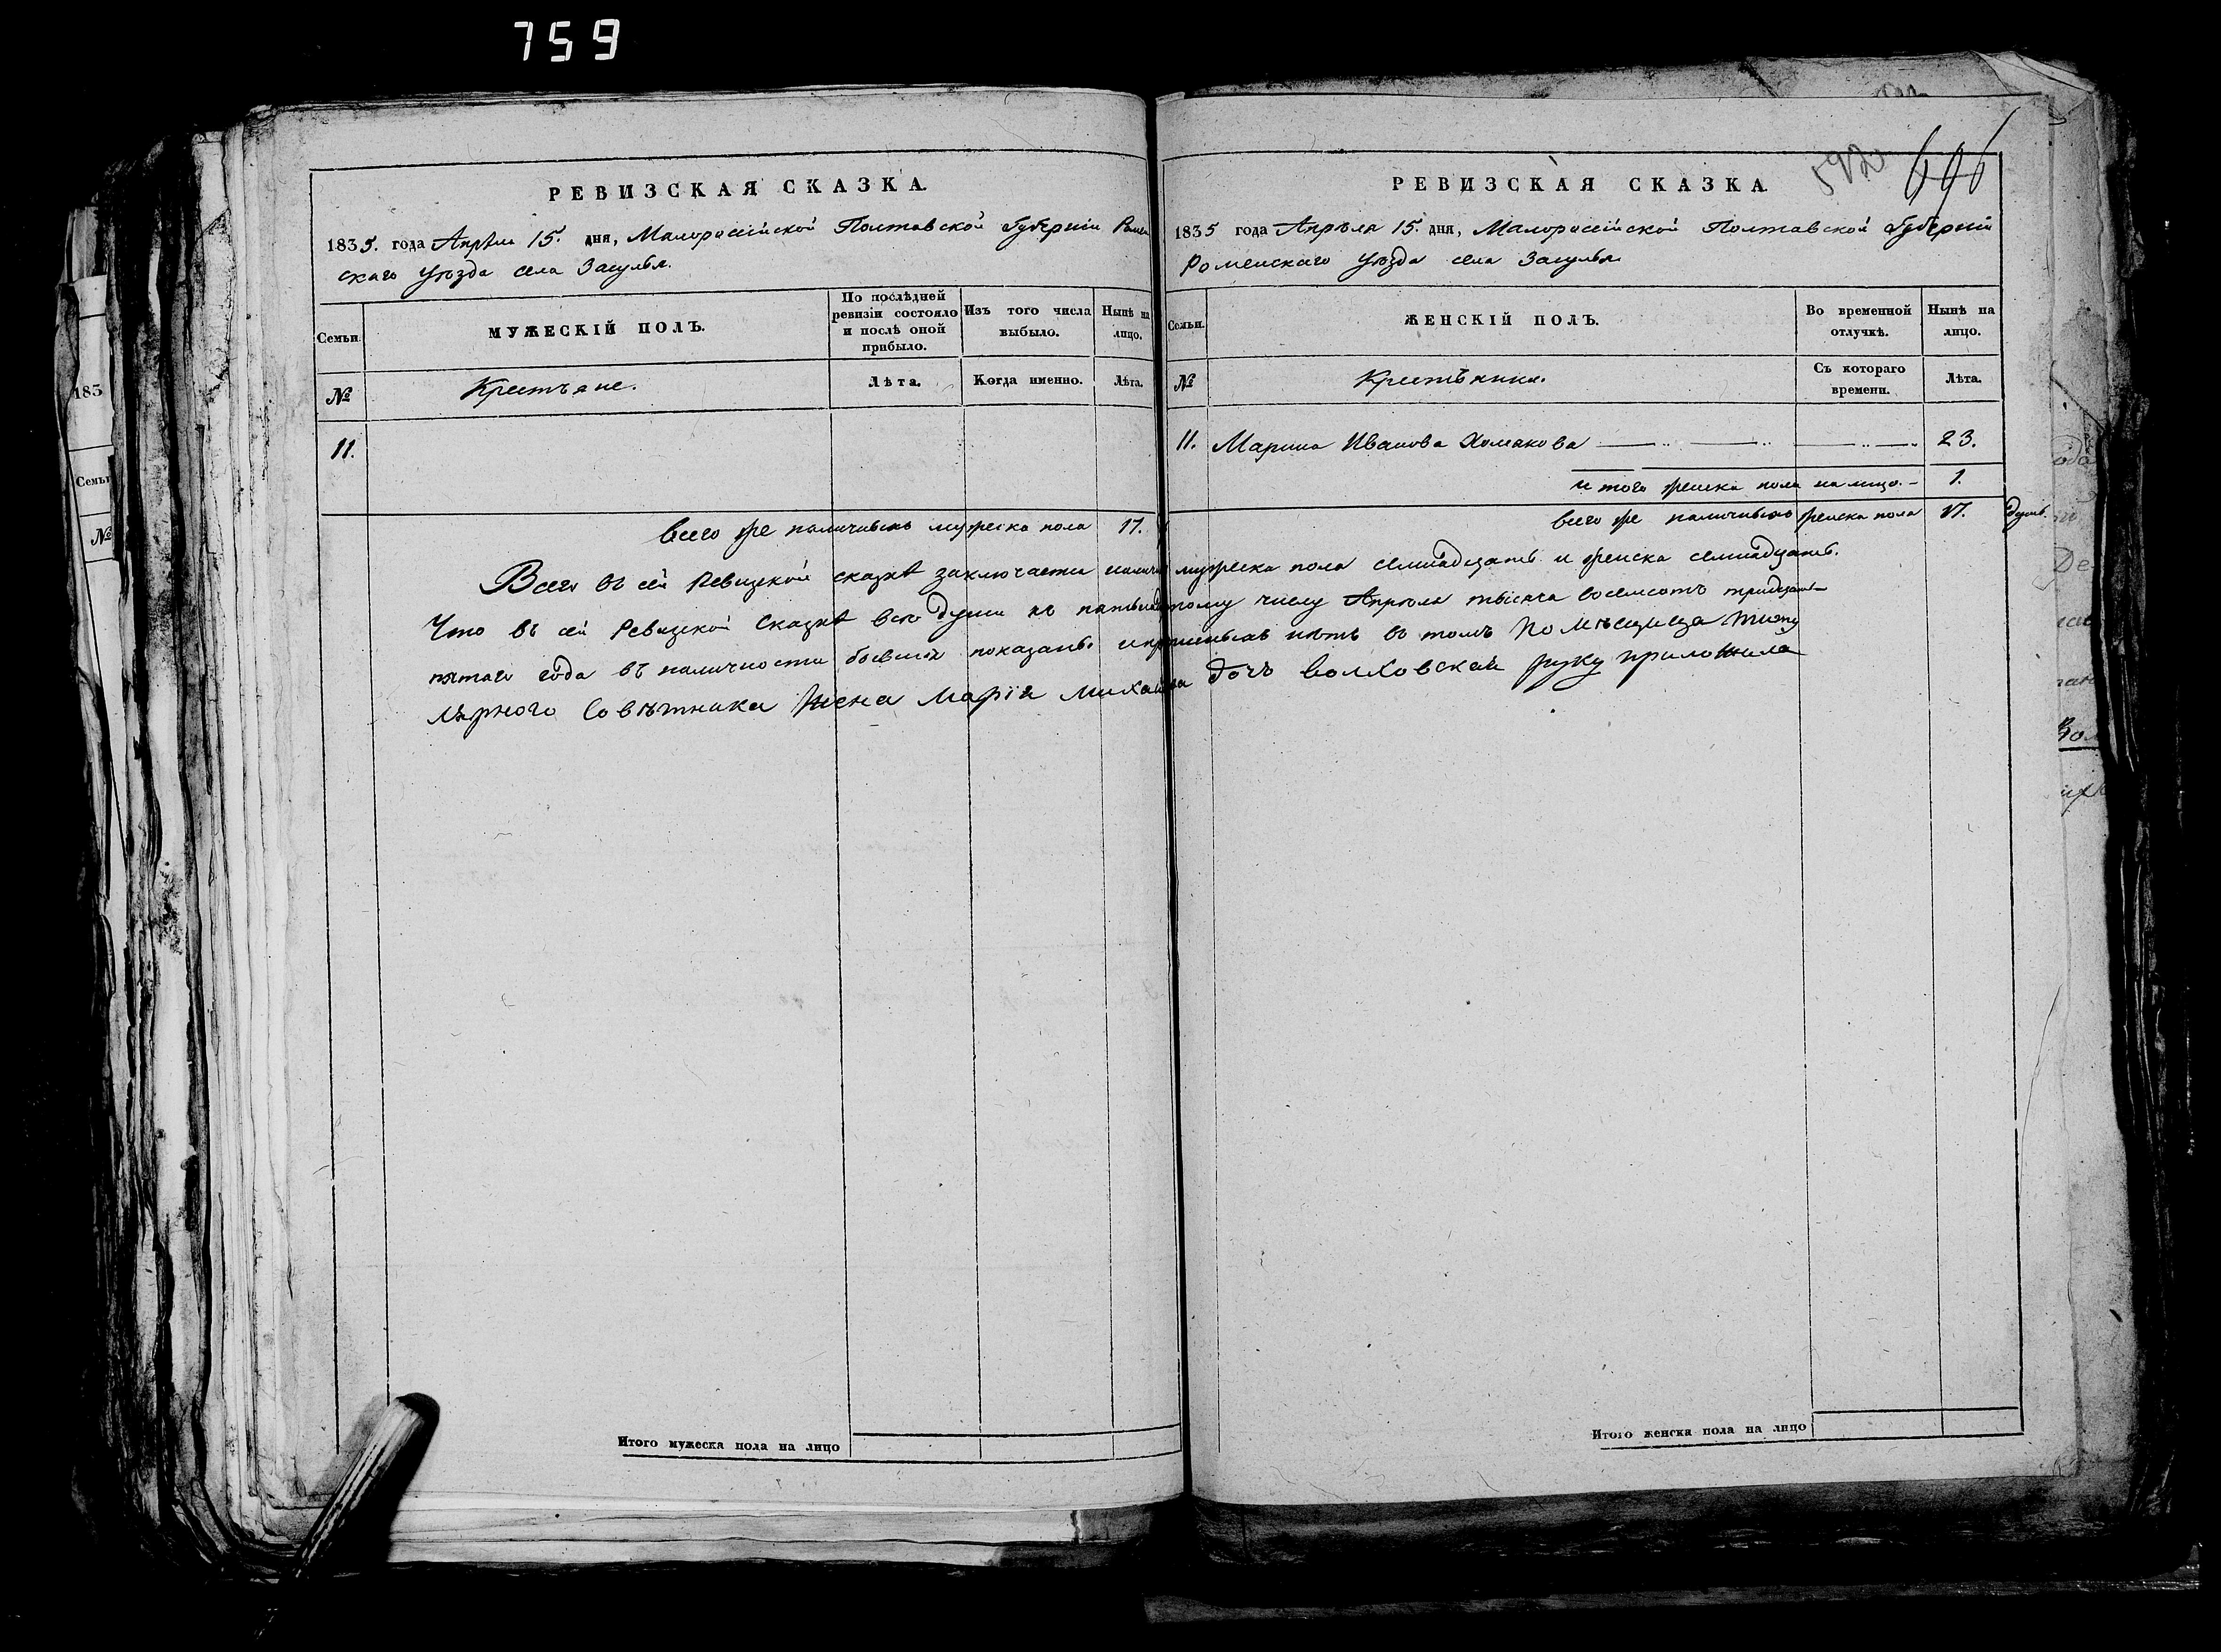 759
РЕВИЗСКАЯ СКАЗКА.
1835. года Апрѣля 15. дня, Малоросійской Полтавской Губерніи Ромен
скаго уѣзда села Засулья.
Семьи.
МУЖЕСКІЙ ПОЛЪ.
По послѣдней ревизіи состояло и послѣ оной прибыло.
Изъ того числа выбыло.
Нынѣ на лицо.
№
Крестьяне.
Лѣта.
Когда именно.
Лѣта.
11.
Всего же наличныхъ мужеска пола 17.
592
696
РЕВИЗСКАЯ СКАЗКА.
1835 года Апрѣля 15. дня, Малоросійской Полтавской Губерніи
Роменскаго уѣзда села Засулья
Семьи.
ЖЕНСКІЙ ПОЛЪ.
Во временной отлучкѣ.
Нынѣ на лицо.
№
Крестьянки.
Съ котораго времени.
Лѣта.
11. Марина Иванова Хомякова 23.
и того женска пола на лицо. 1.
всего же наличныхъ женска пола 17. душъ.
Всего въ сей Ревизской сказкѣ заключается налично мужеска пола семнадцать и женска семнадцать.
Что въ сей Ревизской Сказкѣ всѣ души къ пятьнадцатому числу Апрѣля тысяча восемсотъ тридцать
пятаго года въ наличности бывшія показаны и прописныхъ нѣтъ въ томъ Помѣщица титу
лярного Совѣтника Жена Марія Михайлова дочъ Волховская руку приложила
Итого мужеска пола на лицо
Итого женска пола на лицо
183
Семьи
№